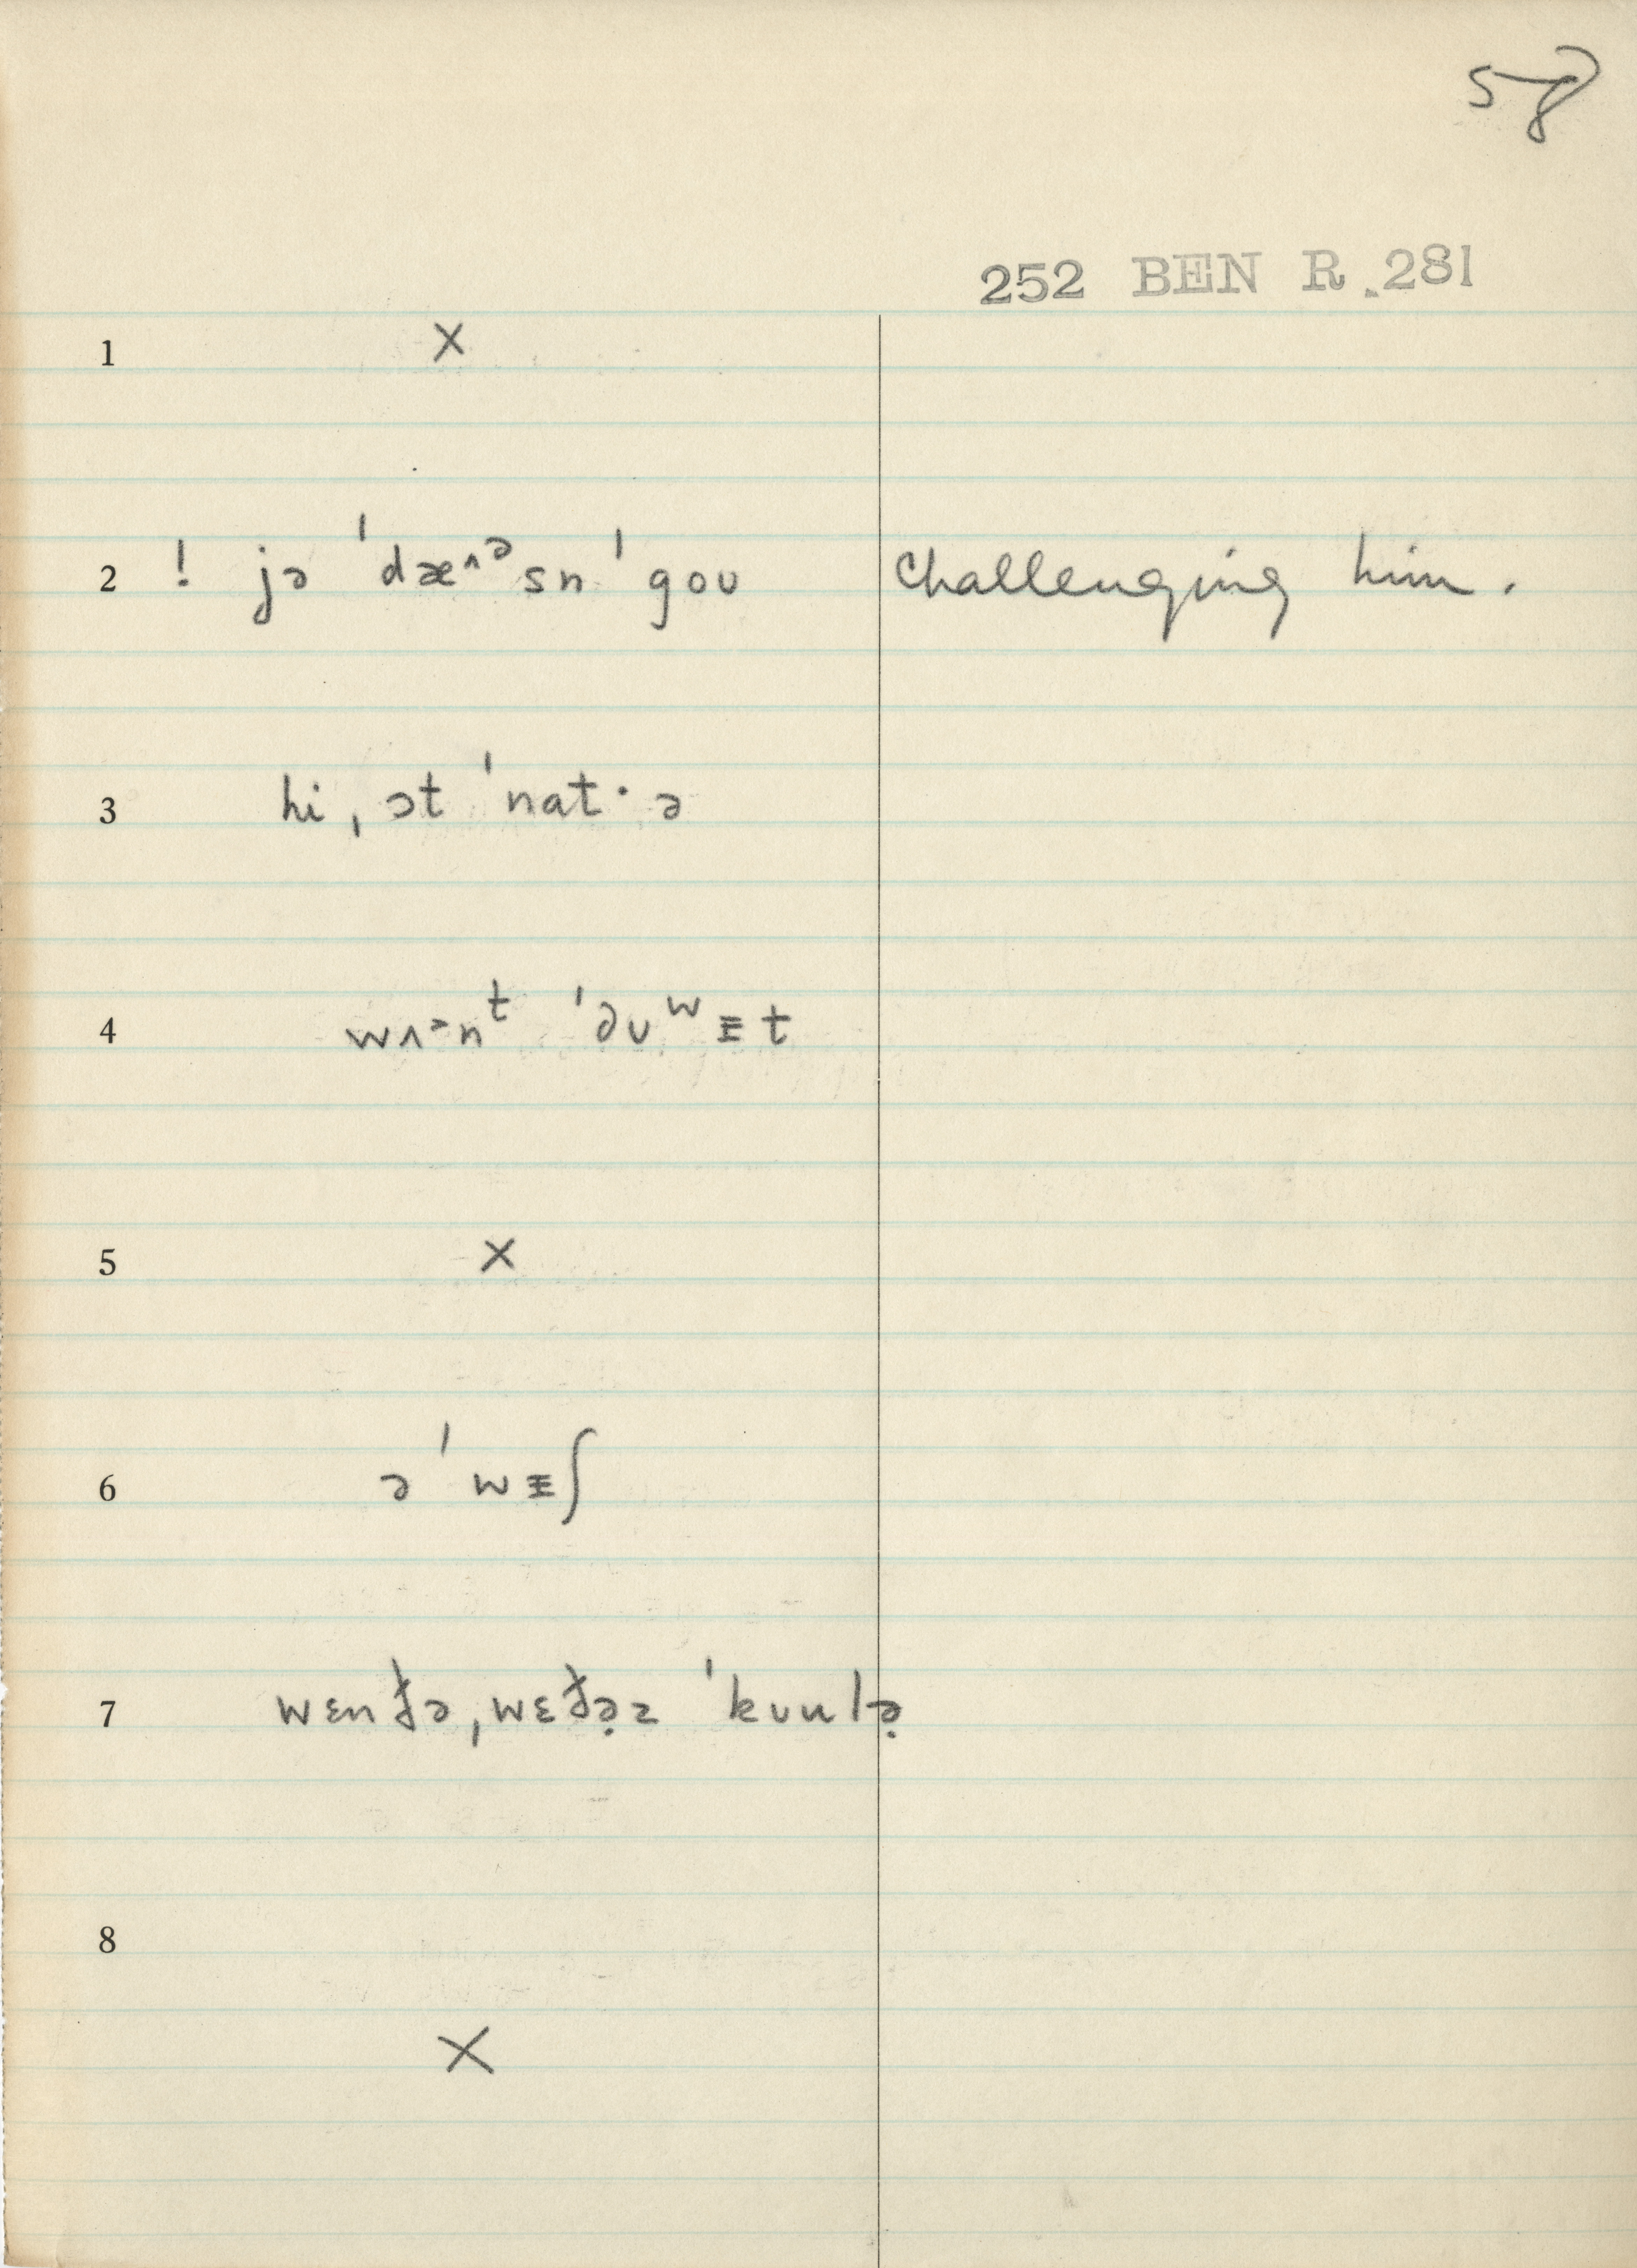 58
252 BEN R.281
1 X
2 ! jə ˈdæ^ᵊsn ˈgoʊ challenging him.
3 hi, ɔt ˈnat· ə
4 wʌᵊnᵗ ˈəʊʷɪt
5 X
6 ə ˈwɪʃ
7 wɛnðə, wɛðə̣z ˈkʊulə̣
8
X